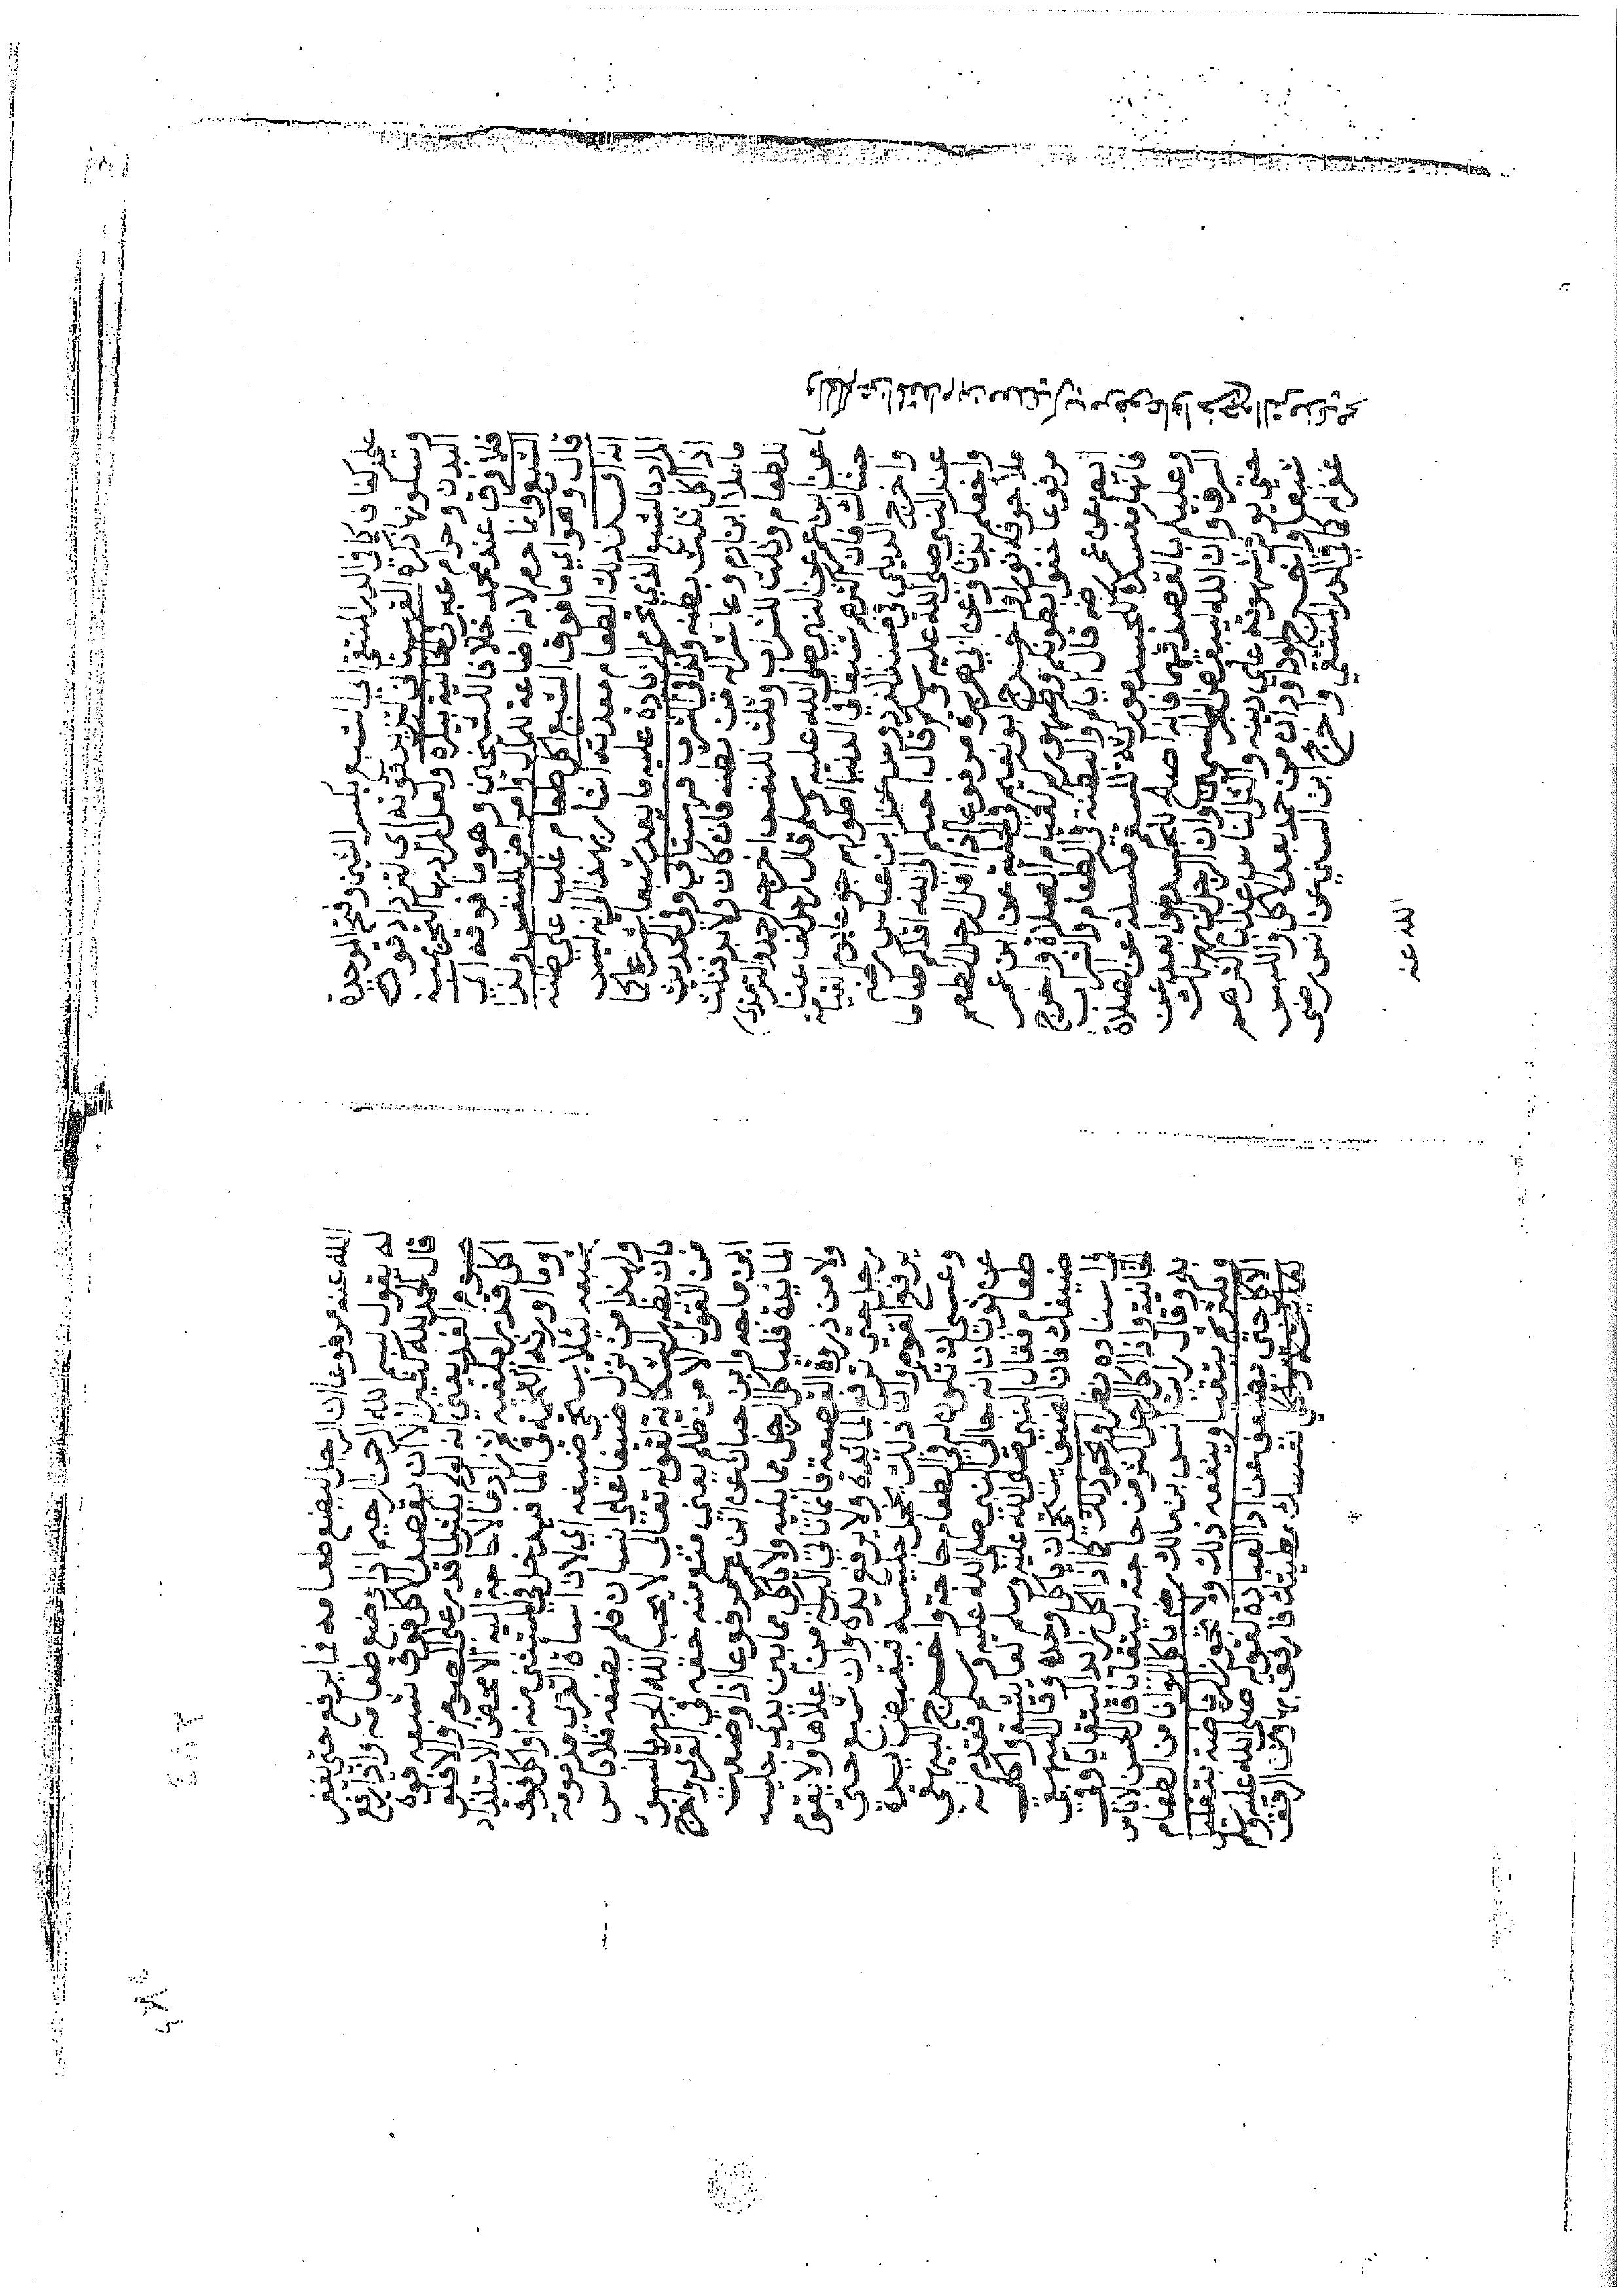 علي كفان كما في الدر المنتقي اي الشبع بكسر الشين وفتح الموحدة
وسكونها ذكره القهستاني لتزيد قوته اي لتزداد قوة
البدن وحرام عبر في الخانية بيكره ولعل المراد بها التحريمية
فلا فرق عند محمد خلافا للشيخين وهو ما فوقه اي
الشبع وانما حرم لانه اضاعة للمال وامراض للنفس
قال وهو اي ما فوق الشبع اكل طعام غلب علي ظنه
انه افسد ذلك الطعام معدته اشار بهذا الي انه ليس
المراد بالشبع الذي تحرم الزيادة عليه ما يعد شبعا شرعا كما
اذا اكل ثلث بطنه وكذا في الشرب قهستاني وفي الحديث
ما ملا ابن ادم وعا شرا من بطنه فان كان ولا بد فثلث
للطعام وثلث للشراب وثلث للنفس اخرجه احمد والترمذي
عن ابن عمر عن النبي صلي الله عليه وسلم قال لرجل كف عنا
جشاك فان اكثرهم شبعا في الدنيا اطولهم جوعا يوم القيامة
واخرج الديلمي في مسند الفردوس عن ابن عباس رضه
عن النبي صلي الله عليه وسلم قال احبكم الي الله اقلكم طعاما
واخفكم بدنا وعن ابي هريرة مرفوعا اذا اقل الرجل الطعم
ملا جوفه نورا واخرج ابو نعيم في الحلية عن ابن عمر
مرفوعا خففوا بطونكم وظهوركم لقيام الصلاة واخرج
ايضا عن عمر رضه قال اياكم والبطنة في الطعام والشراب
فانها مفسدة للجسد مورثة للسقم مكسلة عن الصلاة
وعليكم بالقصد فيهما فانه اصلح للجسد وابعد من
السرف وان الله ليبغض الحبر السمين وان الرجل لن يهلك
حتي يوثر شهوته علي دينه والتزلناس عذابا اكثرهم
شبعا واخرج ابو داود من حمد بعد الاكل واللبس
غفر له كما في الدر المنتقي واخرج ابن السني عن انس رضي
الله عنه
الله عنه مرفوعا ان الرجل ليضع طعامه فما يرفع حتي يغفر
له يقول بسم الله الرحمن الرحيم اذا وضع طعامه واذا رفع
قال الحمد لله كثيرا الا ان يقصد الاكل فوق شبعه قوة
صوم الغد يعني انه لو لم يكثر لما قدر علي الصوم والا فلو
اكل قدرا يكفيه ثم زاد ما لا حاجة اليه الا محض الاستلذاذ
او ما اورثه التخمة في المائدة خلي للستثني منه او اكل فوق
شبعه لئلا يستحي ضيفه اي لان اساة القري مذمومة
ولهذا من نزل ضيفا علي انسان فلم يضفه فلا باس
بان يظهر الشكاية لقوله تعالي لا يحب الله الجهر بالسوء
من القول الا من ظلم يعني منع منه حقه في القري واخرج
ابن ماجه وابن حبان عن ابن عمر مرفوعا اذا وضعت
المائدة فلياكل الرجل مما يليه ولا ياكل مما بين يدي جليسه
ولا من ذروة القصعة فانما تاتي البركة من اعلاها ولا يقوم
رجل حتي ترفع المائدة ولا يرفع يده وان شبع حتي
يرفع القوم وان ذلك يخجل جليسه فيقبض يده
وعسي ان تكون له في الطعام حاجة واخرج البيهقي
عن ثوبان انه جا الي النبي صلي الله عليه وسلم فقدم له
طعام فقال النبي صلي الله عليه وسلم لعايشة واكلي
ضيفك فان الضيف يستحي ان ياكل وحده وقال البيهقي
في اسناده نظر او نحو ذلك كما اذا اكل زايدا ليتقيا وفي
الخانية واذا اكل الرجل اكثر من حاجته ليتقايا قال الحسن لا باس
به وقال رايت انس بن مالك رضه ياكل الوانا من الطعام
ويكثر ثم يتقيا وينفعه ذلك ولا تجوز الرياضة بتقليل
الاكل حتي يضعف عن ادا العبادة لقوله صلي الله عليه وسلم